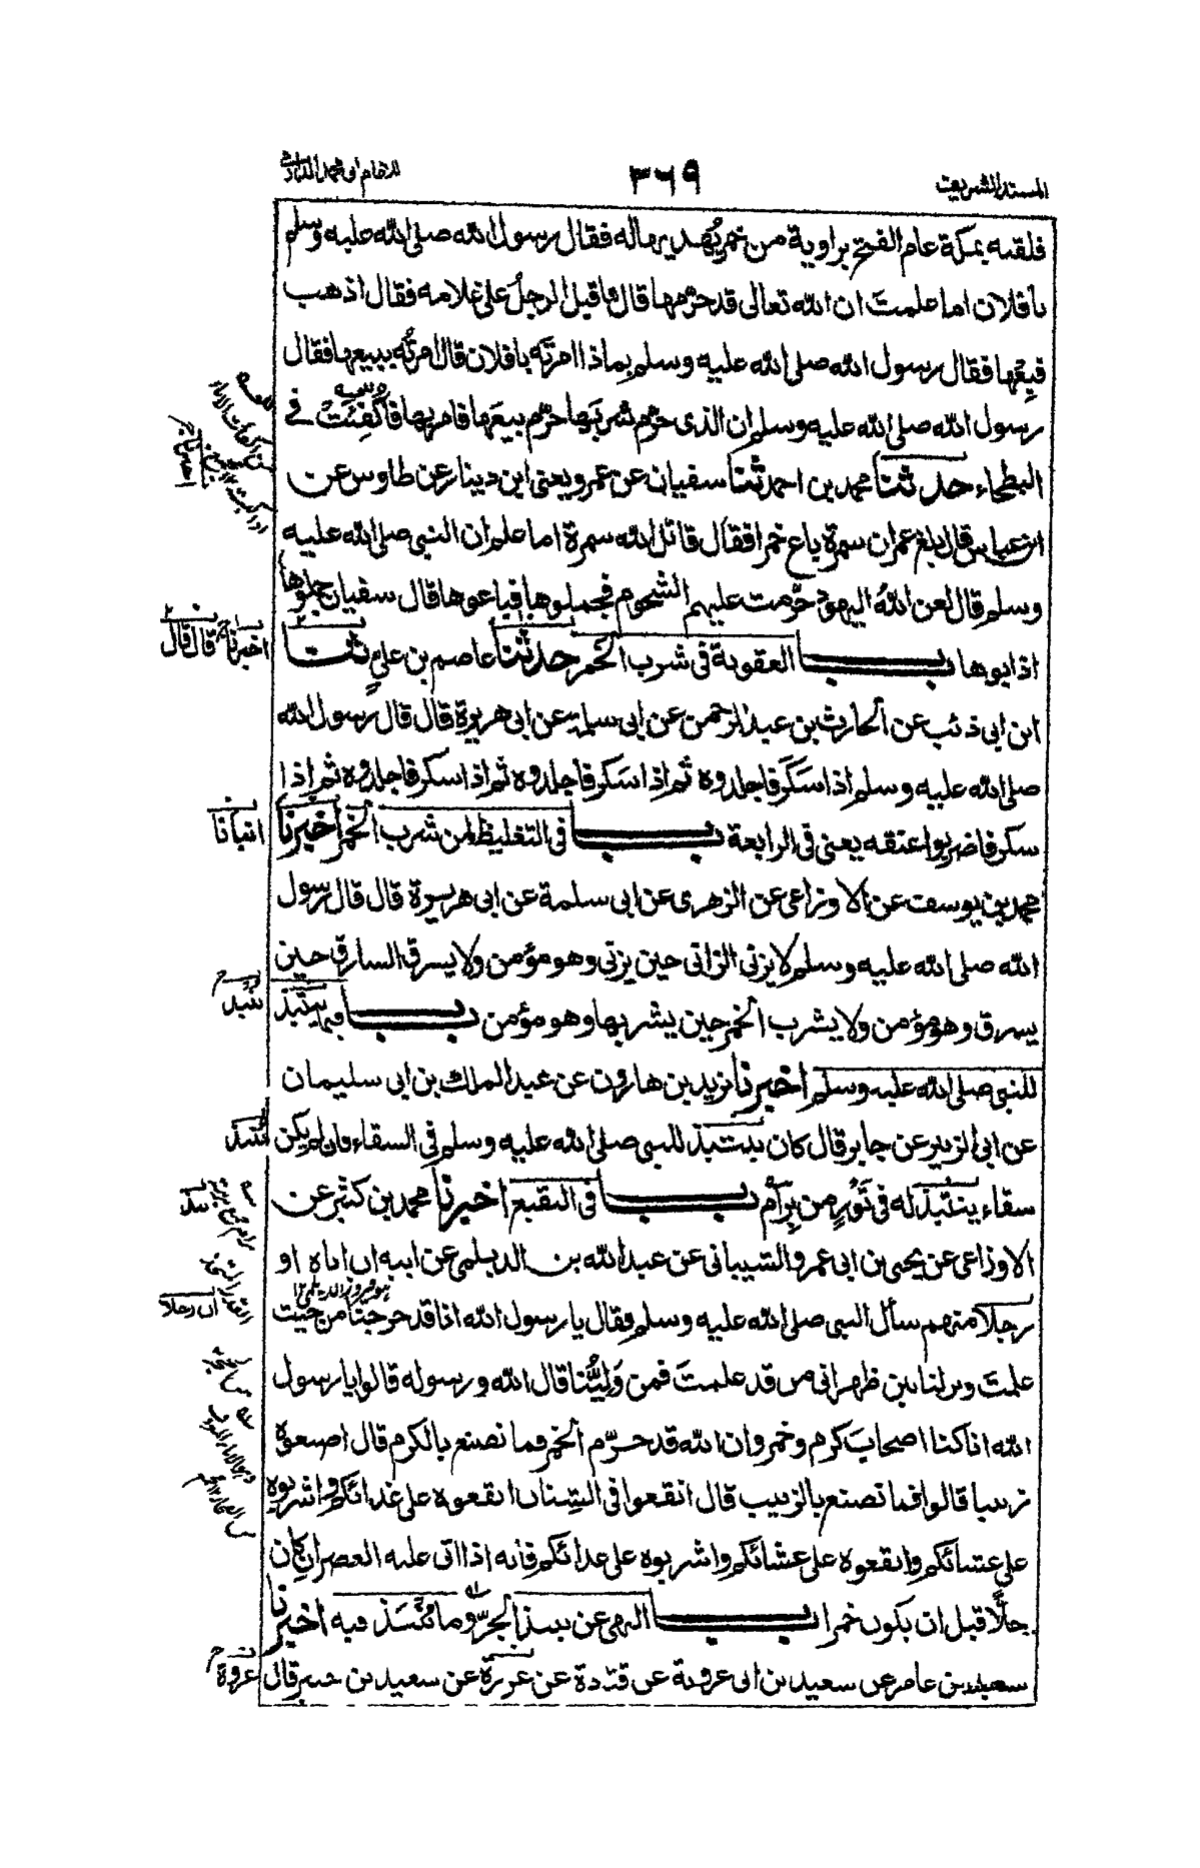 المسند الشريف
٣٦٩
للامام ابى محمد الدارمى
فلقيه بمكة عام الفتح براوية من خمر يُهديها له فقال رسول الله صلى الله عليه وسلم
يا فلان اما علمتَ ان الله تعالى قد حرّمها قال فاقبل الرجلُ على غلامه فقال اذهب
فبِعْها فقال رسول الله صلى الله عليه وسلم بماذا امرتَه يا فلان قال امرتُه ببيعها فقال
رسول الله صلى الله عليه وسلم ان الذى حرّم شربَها حرّم بيعَها فامر بها فاُكْفِئَتْ فى
البطحاء حدثنا محمد بن احمد ثنا سفيان عن عمرو يعنى ابن دينار عن طاوس عن
ابن عباس قال بلغ عمر ان سمرة باع خمرا فقال قاتل الله سمرة اما علم ان النبى صلى الله عليه
وسلم قال لعن اللهُ اليهود حُرّمت عليهم الشحوم فجملوها فباعوها قال سفيان جملوها
اذابوها باب العقوبة فى شرب الخمر حدثنا عاصم بن علىٍ ثنا
ابن ابى ذئب عن الحارث بن عبد الرحمن عن ابى سلمة عن ابى هريرة قال قال رسول الله
صلى الله عليه وسلم اذا سَكَرَ فاجلدوه ثم اذا سَكر فاجلدوه ثم اذا سكر فاجلدوه ثم اذا
سكر فاضربوا عنقه يعنى فى الرابعة باب فى التغليظ لمن شرب الخمر اخبرنا
محمد بن يوسف عن الاوزاعى عن الزهرى عن ابى سلمة عن ابى هريرة قال قال رسول
الله صلى الله عليه وسلم لا يزنى الزانى حين يزنى وهو مؤمن ولا يسرق السارق حين
يسرق وهو مؤمن ولا يشرب الخمر حين يشربها وهو مؤمن باب فيما ينتبذ
للنبى صلى الله عليه وسلم اخبرنا يزيد بن هارون عن عبد الملك بن ابى سليمان
عن ابى الزبير عن جابر قال كان ينتبذ للنبى صلى الله عليه وسلم فى السقاء فان لم يكن
سقاء ينتبذ له فى تَوْرٍ من بِرَام باب فى النقيع اخبرنا محمد بن كثير عن
الاوزاعى عن يحيى بن ابى عمرو الشيبانى عن عبد الله بن الديلمى عن ابيه ان اباه او
هو فيروز الديلمى ١٢
رجلا منهم سأل النبى صلى الله عليه وسلم فقال يا رسول الله انا قد خرجنا من حيث
علمتَ ونزلنا بين ظهرانى من قد علمتَ فمن وَليُّنا قال الله ورسوله قالوا يا رسول
الله انا كنا اصحابَ كرم وخمر وان الله قد حرّم الخمر فما نصنع بالكرم قال اصنعوه
زبيبا قالوا فما نصنع بالزبيب قال انقعوا فى الشنان انقعوه على غدائكم واشربوه
على عشائكم وانقعوه على عشائكم واشربوه على غدائكم فانه اذا اتى عليه العصران كان
حِلًّا قبل ان يكون خمرا باب النهى عن نبيذ الجرّ وما ينتبذ فيه اخبرنا
سعيد بن عامر عن سعيد بن ابى عروبة عن قتادة عن عزرة عن سعيد بن جبير قال
اخبرنا قال قال
انبانا
نبذ
تنتبذ
ان رجلا
عروة